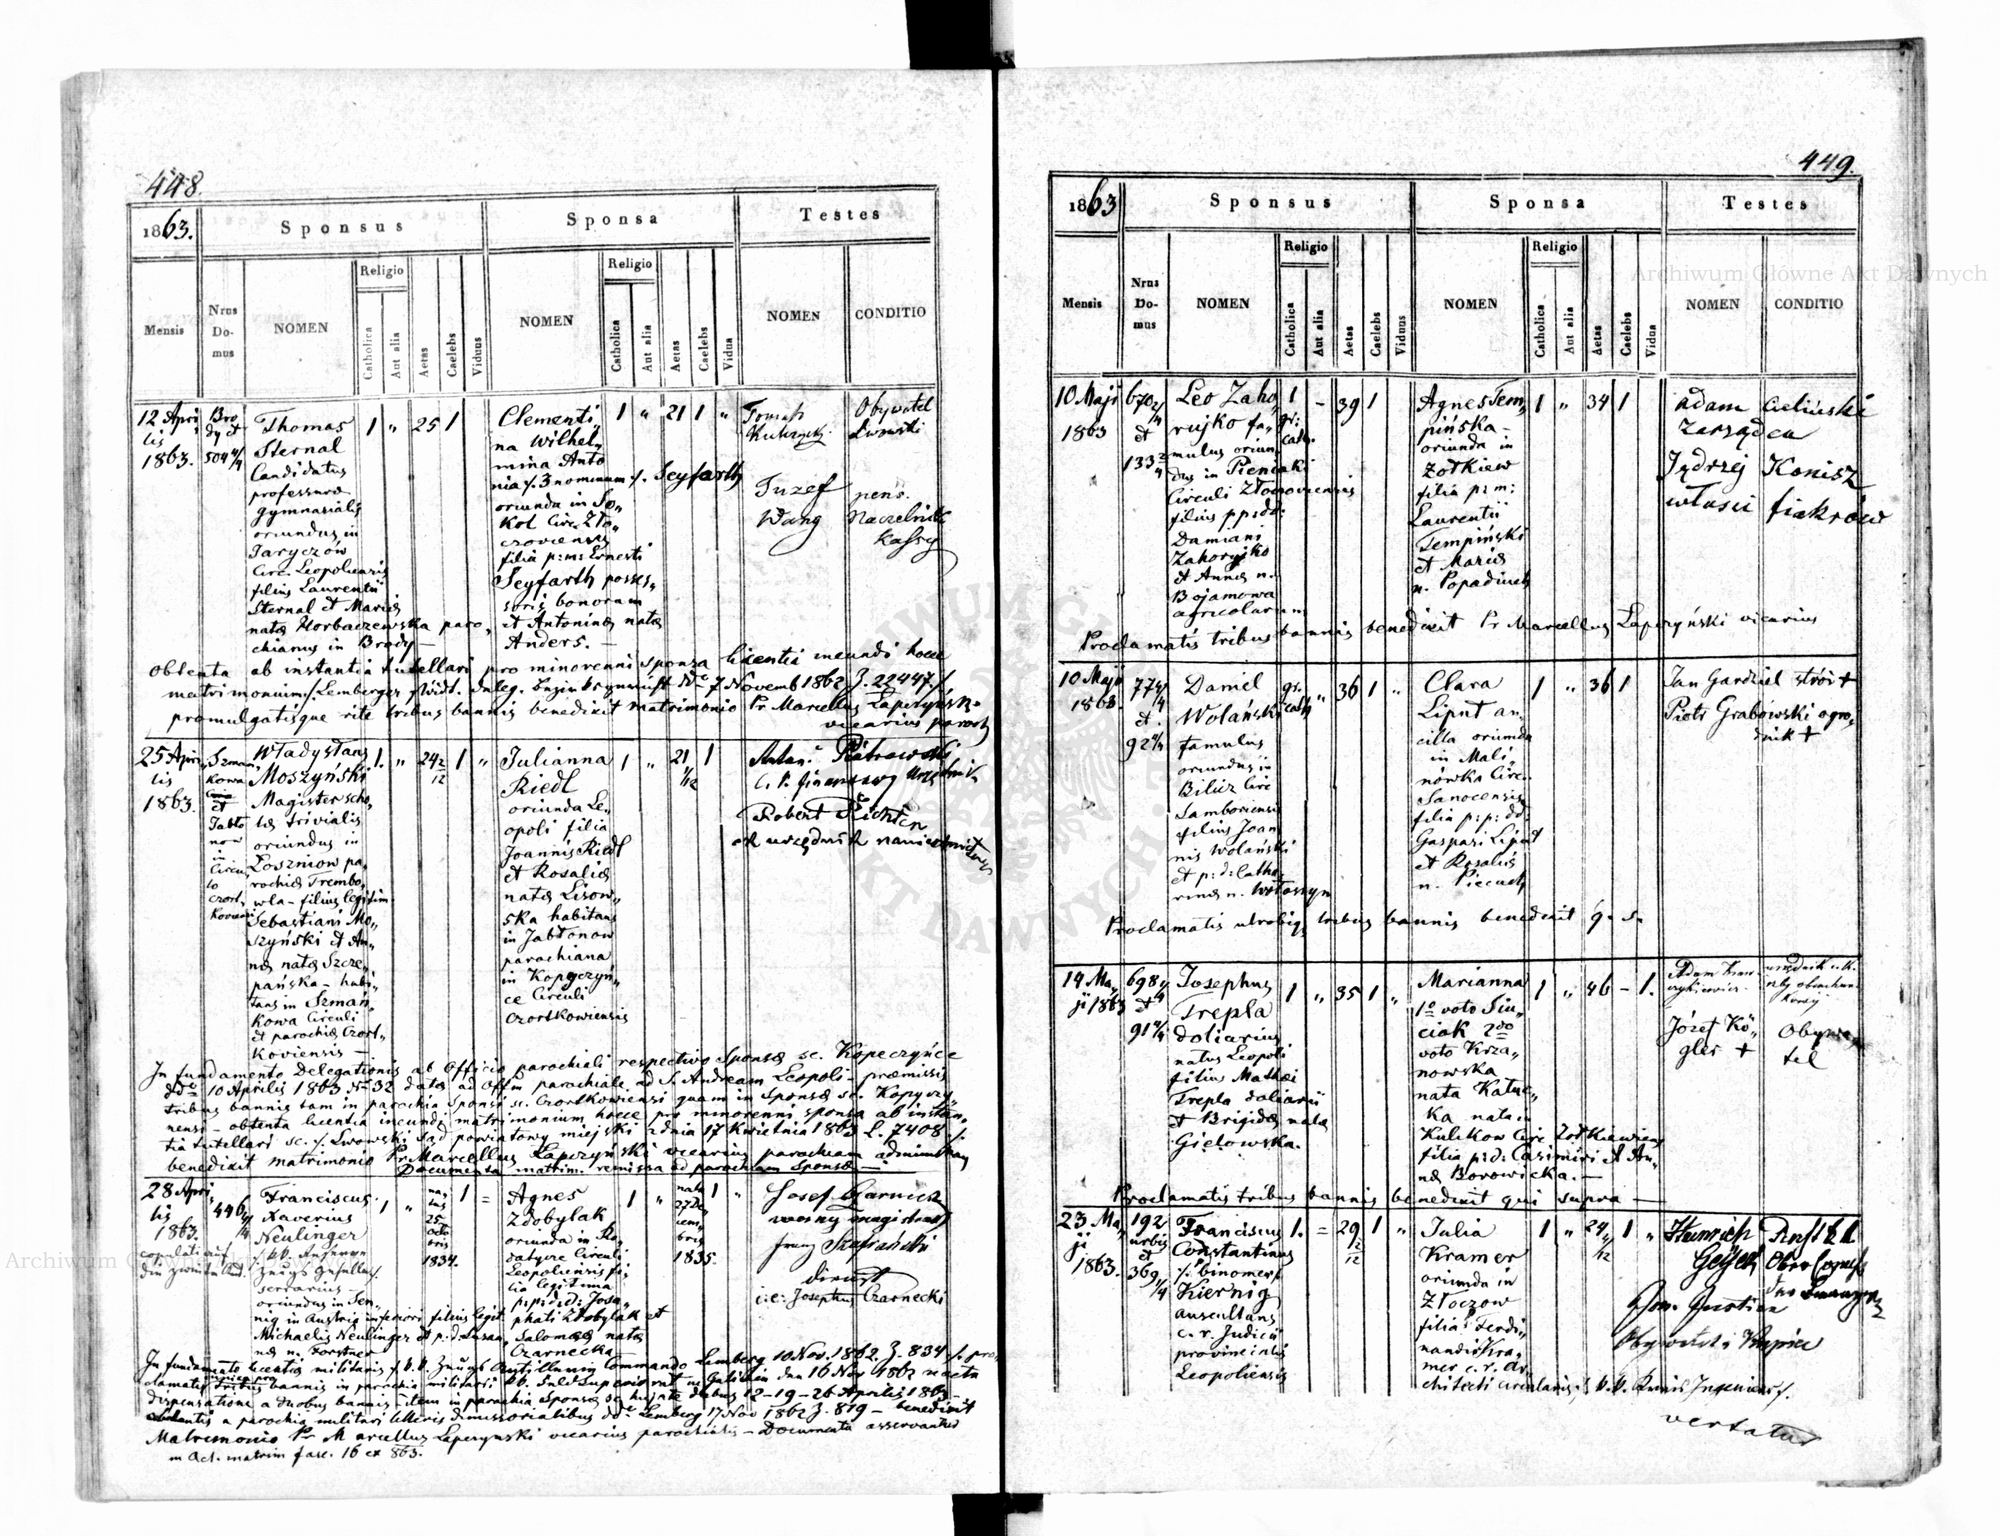 448.
1863.
Sponsus
Sponsa
Testes
Mensis
Nrus Do-mus
NOMEN
Religio
Catholica
Aut alia
Aetas
Caelebs
Viduus
NOMEN
Religio
Catholica
Aut alia
Aetas
Caelebs
Vidua
NOMEN
CONDITIO
12 Apri
lis
1863.
Bro
dy et
504 4/4
Thomas
Sternal
Candidatus
professurae
gymnasialis
oriundus in
Jaryczow
Circ. Leopoliensis
filius Laurentii
Sternal et Mariae
natae Horbaczewska paro„
chianus in Brody —
1 „ 25 1
Clementi„
na Wilhel„
mina Anto
nia /. 3 nominum /. Seyfarth
oriunda in So„
kol Circ. Zło„
czoviensis
filia p:m: Ernesti
Seyfarth posses„
soris bonorum
et Antoninae natae
Anders. —
1 „ 21 1 „
Tomasz
Obywatel
Lwowski
Juzef
Wang
pens.
Naczelnik
Kassy
Obtenta ab instantia tutellari pro minorenni sponsa licentia ineundi hocce
matrimonium /. Lemberger städt. deleg. Bezirksgericht ddo 7 Novemb 1862 Z. 22447 /.
promulgatisque rite tribus bannis benedixit matrimonio Pr Marcellus Łapczyński
vicarius paroch
25 Apri
lis
1863.
Szmań
kowa
et
Jabło
now
in
Circu
lo
Czort„
koviensi
Władysłaus
Moszyński
Magister scho„
lae trivialis
oriundus in
Łoszniow pa„
rochiae Trembo„
wla - filius legitim.
Sebastiani Mo„
szyński et An„
nae natae Szcze„
pańska - habi„
tans in Szmań„
kowa Circuli
et parochiae Czort„
koviensis —
1. „ 24 2/12 1 „
Julianna
Riedl
oriunda Le„
opoli filia
Joannis Riedl
et Rosaliae
natae Lisow„
ska habitans
in Jabłonow
parochiana
in Kopyczyń„
ce Circuli
Czortkowiensis
1 „ 21 1/12 1
Antoni Piotrowski
c. k. finansowy urzędnik
Robert Richter
ck urzędnik namiestnictwa
In fundamento Delegationis ab Officio parochiali respectivo Sponsae sc. Kopeczyńce
ddo 10 Aprilis 1863 No 32 datae ad Offm parochiale ad S. Andream Leopoli - praemissis
tribus bannis tam in parochia Sponsi sc. Czortkowiensi quam in Sponsae sc. Kopyczy„
nensi - obtenta licentia ineundi matrimonium hocce pro minorenni sponsa ab instan„
tia tutellari sc. /. Lwowski Sąd powiatowy miejski z dnia 17 Kwietnia 1863 L. 7408 /.
benedixit matrimonio Pr. Marcellus Łapczyński vicarius parochiam administrans
Documenta matrim. remissa ad parochiam Sponsae —
28 Apri
lis
1863.
446 4/4
Franciscus
Xaverius
Neulinger
serrarius
oriundus in Sen„
nig in Austria inferiori filius legit.
Michaelis Neulinger et p: d: Susan„
nae n. Forstner
1 „
na„
tus
25
octo
bris
1834.
1 =
Agnes
Zdobylak
oriunda in Ro„
datycze Circuli
Leopoliensis fi„
lia legitima
p:p: d:d: Josa„
phati Zdobylak et
Salomeae natae
Czarnecka —
1 „
nata
27 De„
cem„
bris
1835.
1 „
Josef Czarnecki
woźny magistratu
Franz Szafrański
dienst
i:e: Josephus Czarnecki
In fundamento licentiae militaris /. k.k. Zeugs Artillerie Commando Lemberg 10 Nov. 1862. Z. 834 /. pro„
clamatis tribus bannis in parochia militari
dispensatione a duobus bannis - item in parochia Sponsae sc. hujate diebus 12 - 19 - 26 Aprilis 1863 -
a parochia militari litteris dimissorialibus ddo Lemberg 17 Nov 1862 Z. 819 - benedixit
Matrimonio Pr Marcellus Łapczyński vicarius parochialis - Documenta asservantur
in Act. matrim fasc. 16 ex 863.
449.
1863
Sponsus
Sponsa
Testes
Mensis
Nrus Do-mus
NOMEN
Religio
Catholica
Aut alia
Aetas
Caelebs
Viduus
NOMEN
Religio
Catholica
Aut alia
Aetas
Caelebs
Vidua
NOMEN
CONDITIO
10 Maji
1863
670 2/4
et
133 2/4
Leo Zaho„
rujko fa„
mulus oriun„
dus in Pieniaki
Circuli Złoczoviensis
filius p:p: dd:
Damiani
Zahorujko
et Annae n.
Bojamowa
agricolarum
1
gr:
cath.
- 39 1
Agnes Tem„
pińska -
oriunda in
Żołkiew
filia p: m:
Laurentii
Tempiński
et Mariae
n. Popadiuch
1 „ 34 1
Adam Cieliński
Zarządca
Jędrzej Konisz
własci fiakrów
Proclamatis tribus bannis benedixit Pr Marcellus Łapczyński vicarius
10 Maji
1863.
77 4/4
et.
92 4/4
Daniel
Wolański
famulus
oriundus in
Bilicz Circ
Samboriensi
filius Joan„
nis Wolański
et p: d: Catha„
rinae n. Włoszyn
gr.
cath
„ 36 1 „
Clara
Lipnt an„
cilla oriunda
in Mali„
nówka Circ.
Sanocensis
filia p: p: dd:
Gaspari Lipnt
et Rosaliae
n. Piecuch
1 „ 36 1
Jan Gardziel stróż +
Piotr Grabowski ogro„
dnik +
Proclamatis utrobiq tribus bannis benedixit q. s.
14 Ma„
ji 1863
698 4/4
et
91 4/4
Josephus
Trepla
doliarius
natus Leopoli
filius Mathaei
Trepla doliarii
et Brigidae natae
Gielowska.
1 „ 35 1 „
Marianna
1o voto Siu„
ciak 2do
voto Krza„
nowska
nata Katus„
ka nata in
Kulikow Circ Zołkieviens
filia p: d: Casimiri et An„
nae Borowicka. —
1 „ 46 - 1.
Józef Kö„
gler +
Obywa
tel
Proclamatis tribus bannis benedixit qui supra —
23 Ma„
ji
1863.
192
urbis
et
369 4/4
Franciscus
Constantinus
/. binomen /.
Kiernig
auscultans
c. r. Judicii
provincialis
Leopoliensis
1. = 29 2/12 1 „
Julia
Kramer
oriunda in
Złoczow
filia Ferdi„
nandi Kra„
mer c. r. Ar„
chitecti circularis /. k. k. Kreis Ingenieur /.
1 „ 24 4/12 1 „
Heinrich
vertatur
Archiwum Główne Akt Dawnych
Archiwum Główne Akt Dawnych